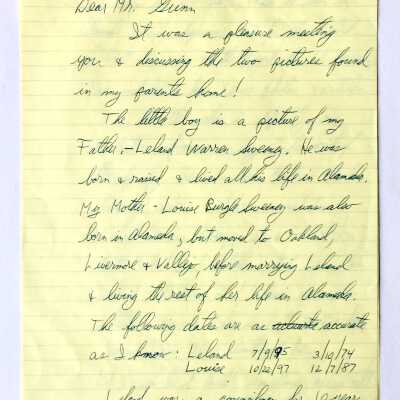 Dear Mr. Gunn
It was a pleasure meeting
you & discussing the two pictures found
in my parents home!
The little boy is a picture of my
Father, - Leland Warren Sweeney. He was
born & raised & lived all his life in Alameda.
My Mother - Louise Burgle Sweeney was also
born in Alameda, but moved to Oakland,
Livermore & Vallejo, before marrying Leland
& living the rest of her life in Alameda.
The following dates are as accurate
as I know: Leland 7/9/95 3/19/74
Louise 10/22/97 12/7/87
Leland was a councilman for years